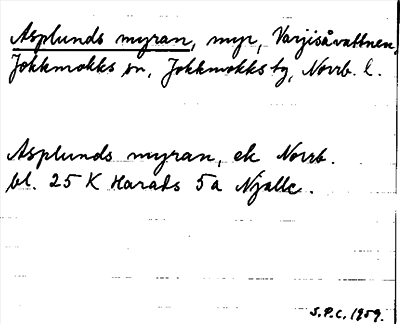 Asplunds myran, myr, Varjisåvattnen,
Jokkmokks sn, Jokkmokks tg, Norrb. l.
Asplunds myran, ek Norrb.
bl. 25 K Harads 5a Njalle.
S.P.C. 1959.